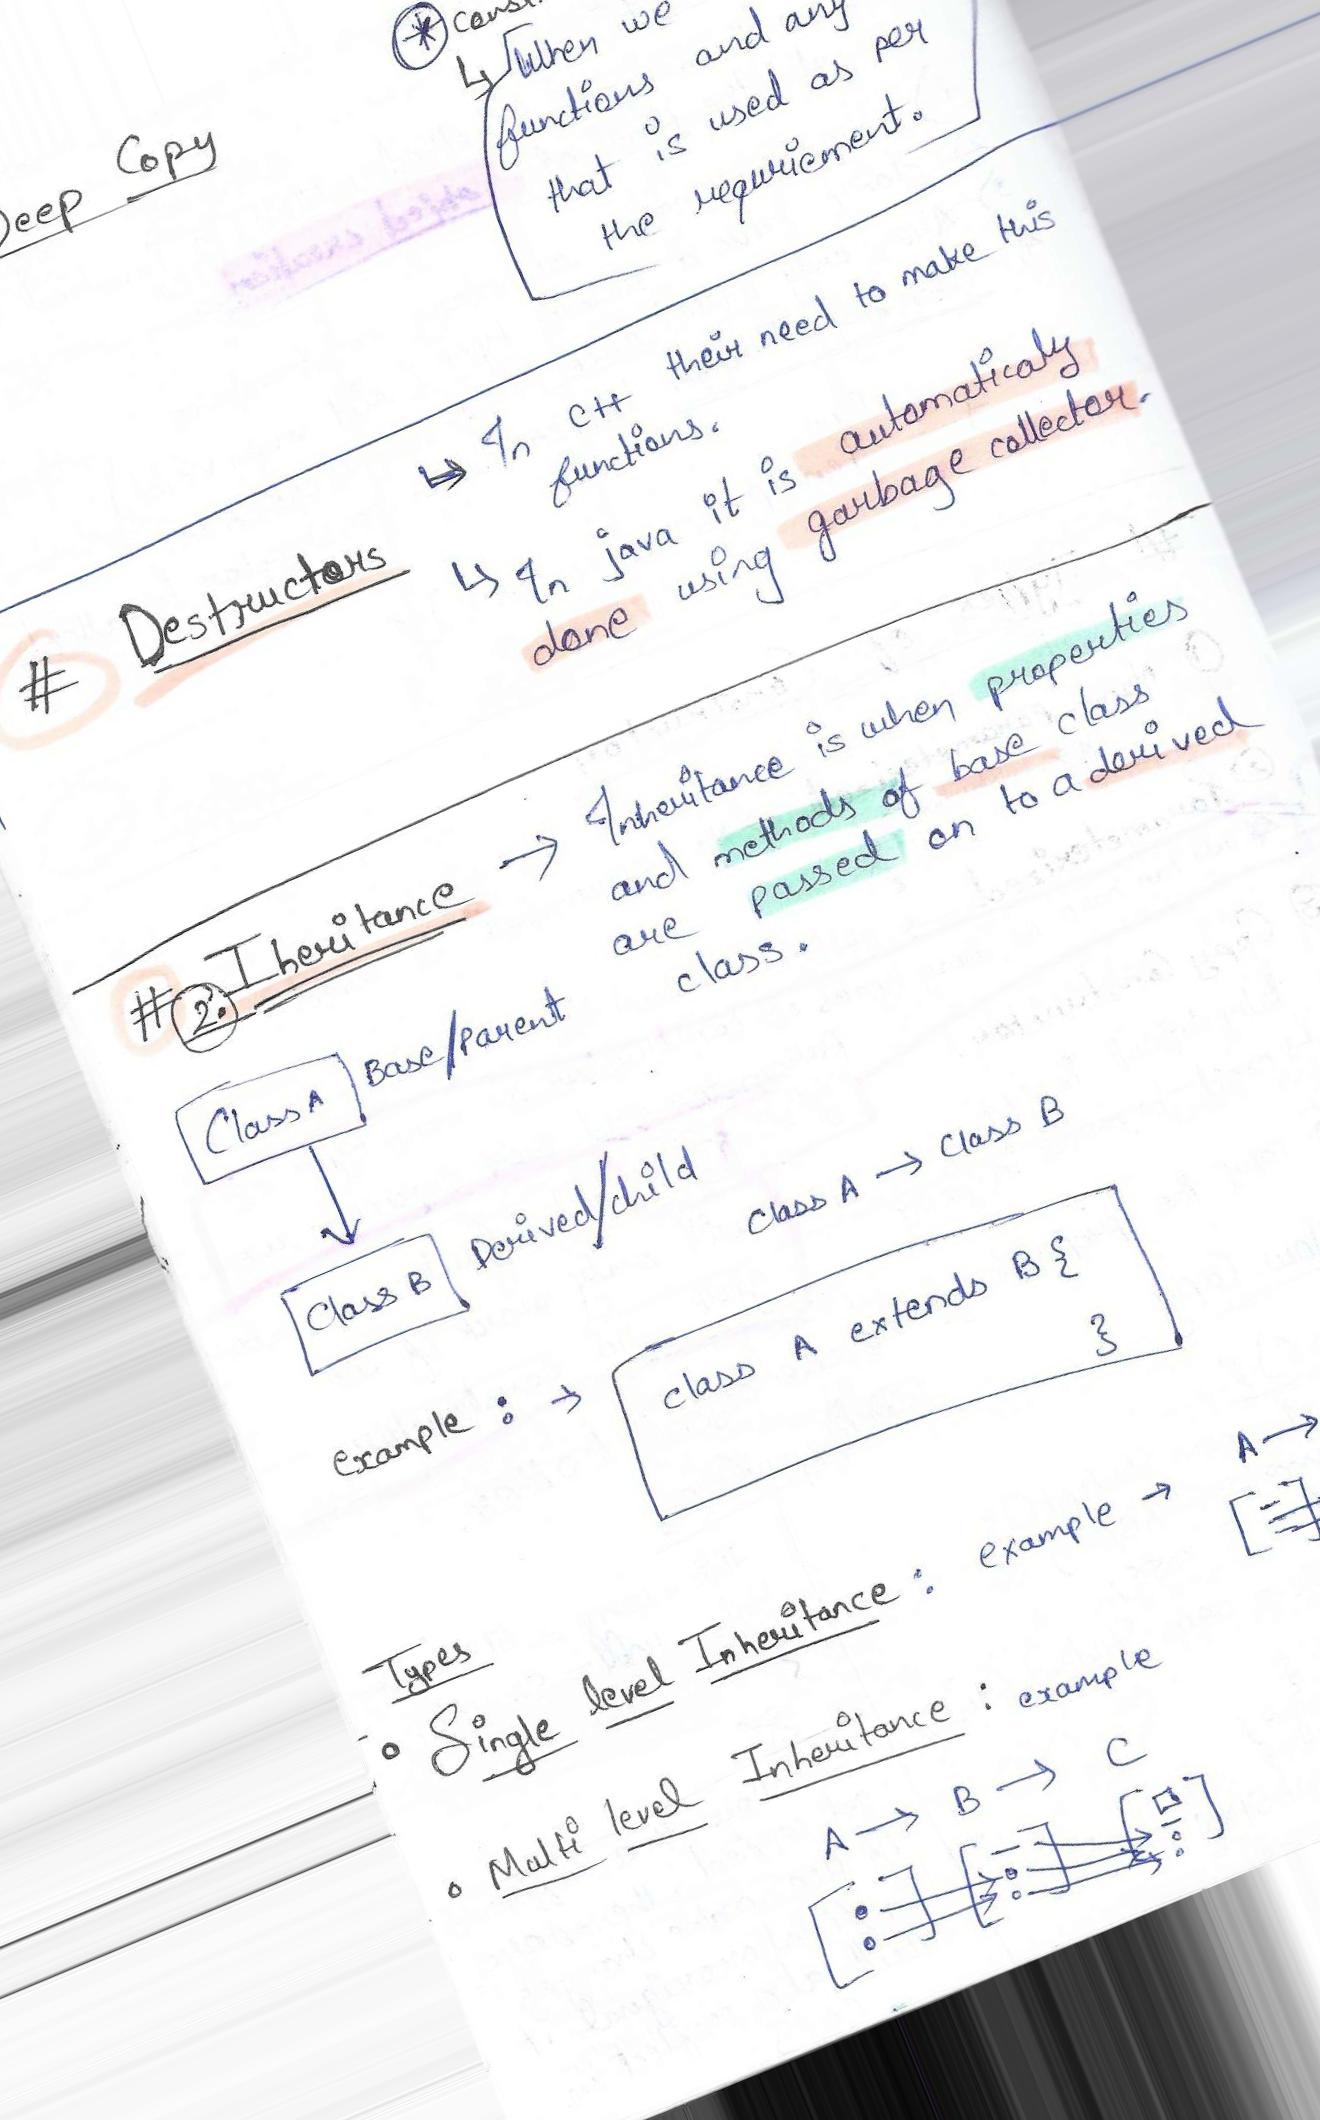 When we
functions and any
that is used as per
the requriement.
Deep Copy
# Destructors
↳ In C++ their need to make this
functions.
↳ In java it is automaticaly
done using garbage collector.
# 2. Iheritance → Inheritance is when properties
and methods of base class
are passed on to a derived
class.
Class A Base/Parent
Class B Derived/child
Class A → Class B
example : → class A extends B {
}
Types
• Single level Inheritance : example → A →
• Multi level Inheritance : example
A → B → C